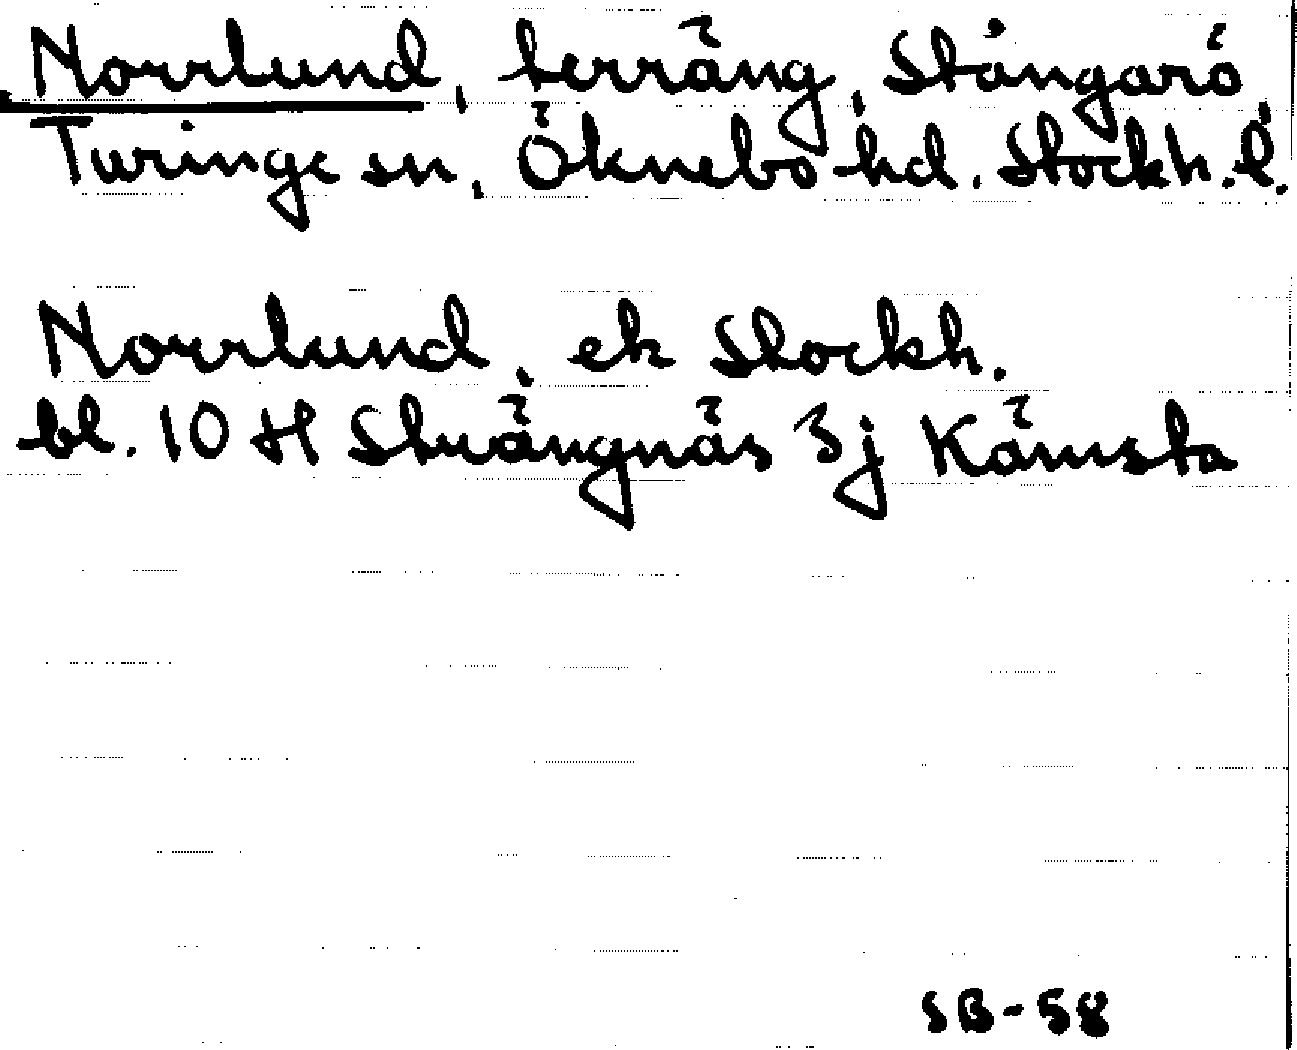 Norrlund, terräng, Stångarö,
Turinge sn, Öknebo hd. Stockh. l.
Norrlund, ek Stockh.
bl. 10 H Strängnäs 3j Kämsta
SB-58